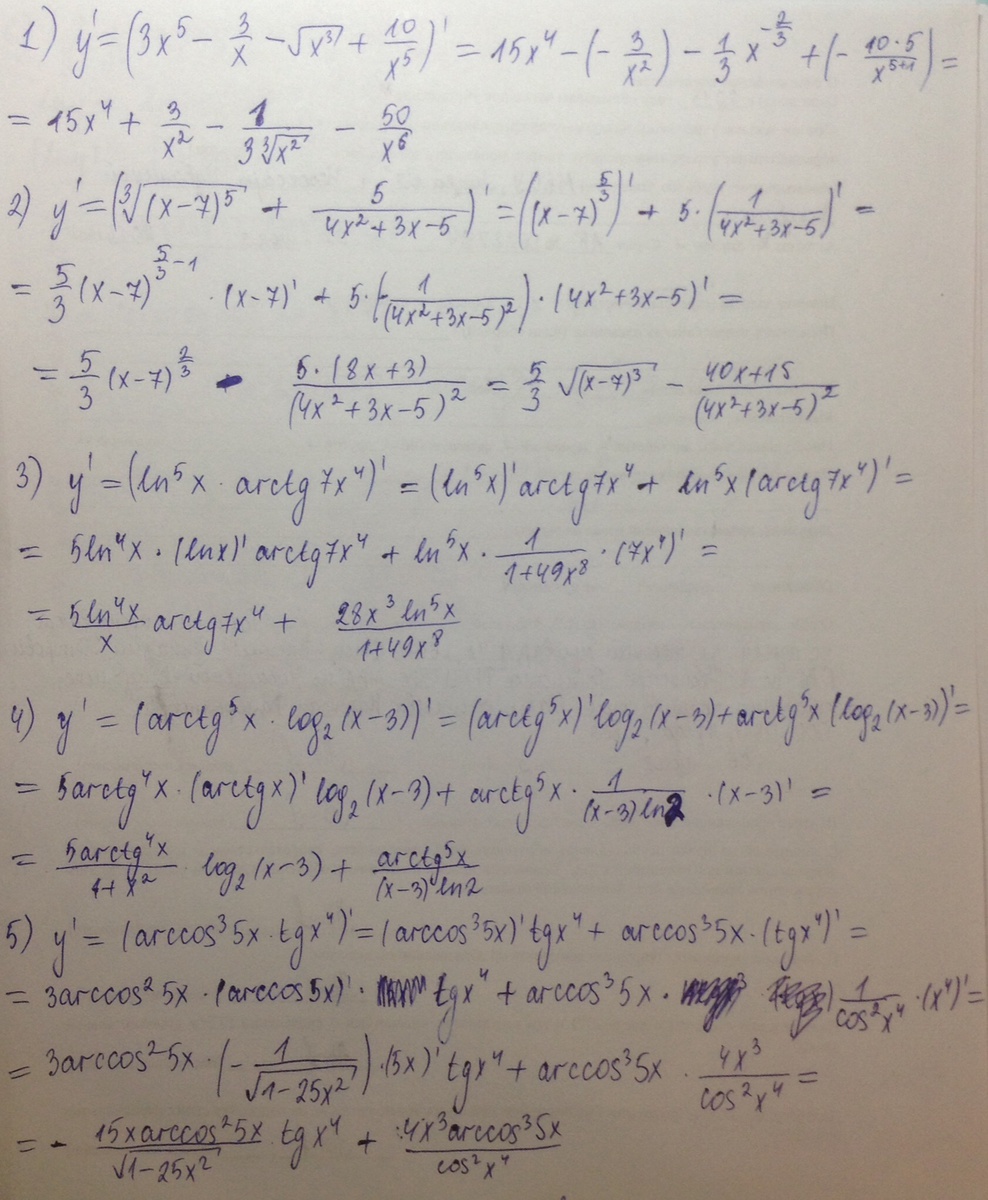 1) y' = (3x⁵ - 3/x - √x³ + 10/x⁵)' = 15x⁴ - (- 3/x²) - 1/3 x^(-2/3) + (- 10·5/x⁵⁺¹) =
= 15x⁴ + 3/x² - 1/(3∛x²) - 50/x⁶
2) y' = (∛(x-7)⁵ + 5/(4x²+3x-5))' = ((x-7)^(5/3))' + 5·(1/(4x²+3x-5))' =
= 5/3 (x-7)^(5/3-1) · (x-7)' + 5·(-1/(4x²+3x-5)²) · (4x²+3x-5)' =
= 5/3 (x-7)^(2/3) - 5·(8x+3)/(4x²+3x-5)² = 5/3 √(x-7)³ - (40x+15)/(4x²+3x-5)²
3) y' = (ln⁵x · arctg7x⁴)' = (ln⁵x)' arctg7x⁴ + ln⁵x (arctg7x⁴)' =
= 5ln⁴x · (lnx)' arctg7x⁴ + ln⁵x · 1/(1+49x⁸) · (7x⁴)' =
= 5ln⁴x/x arctg7x⁴ + 28x³ ln⁵x/(1+49x⁸)
4) y' = (arctg⁵x · log₂(x-3))' = (arctg⁵x)' log₂(x-3) + arctg⁵x (log₂(x-3))' =
= 5arctg⁴x · (arctgx)' log₂(x-3) + arctg⁵x · 1/((x-3)ln2) · (x-3)' =
= 5arctg⁴x/(1+x²) log₂(x-3) + arctg⁵x/((x-3)ln2)
5) y' = (arccos³5x · tgx⁴)' = (arccos³5x)' tgx⁴ + arccos³5x · (tgx⁴)' =
= 3arccos²5x · (arccos5x)' · tgx⁴ + arccos³5x · 1/cos²x⁴ · (x⁴)' =
= 3arccos²5x · (- 1/√(1-25x²)) · (5x)' tgx⁴ + arccos³5x · 4x³/cos²x⁴ =
= - 15xarccos²5x/√(1-25x²) · tgx⁴ + 4x³arccos³5x/cos²x⁴